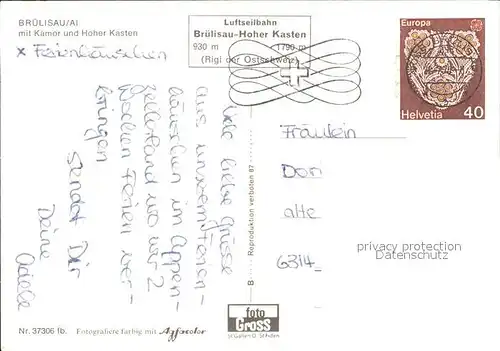 BRÜLISAU/AI
mit Kamor und Hoher Kasten
x Ferienhäuschen
Luftseilbahn
Brülisau-Hoher Kasten
930 m 1790 m
(Rigi der Ostschweiz)
Europa
Helvetia 40
Viele liebe Grüsse
aus unserem Ferien-
häuschen im Appen-
zellerland wo wir 2
Wochen Ferien ver-
bringen
sendet Dir
Deine
Fräulein
Dori
alte
6314
privacy protection
Datenschutz
B - Reproduktion verboten 87
foto
Gross
St.Gallen O. St.Fiden
Nr. 37306 fb. Fotografiere farbig mit Agfacolor